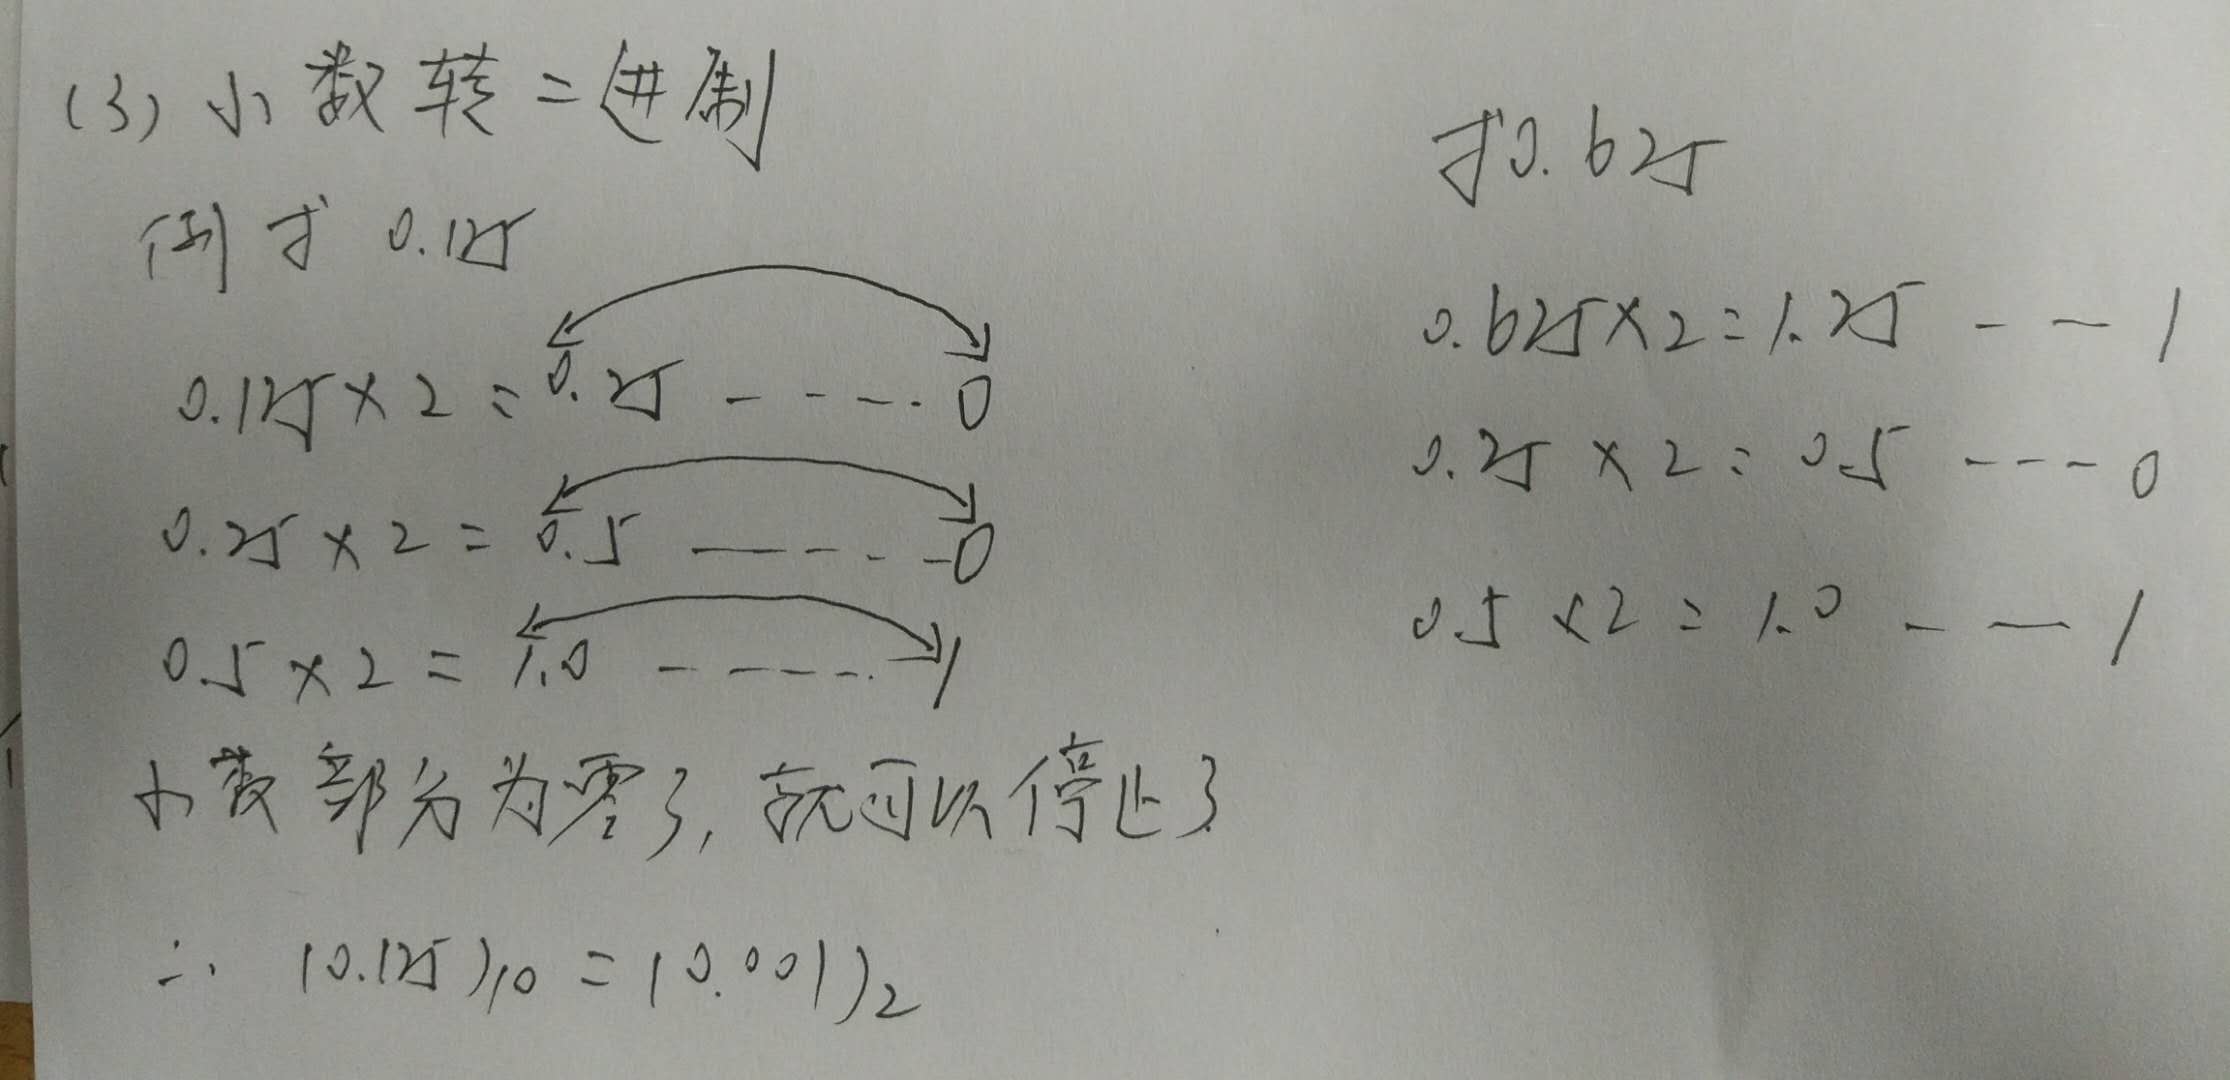 (3) 小数转二进制
例 求 0.125
0.125 × 2 = 0.25 - - - - - 0
0.25 × 2 = 0.5 - - - - - 0
0.5 × 2 = 1.0 - - - - - 1
小数部分为零了, 就可以停止了
∴ (0.125)10 = (0.001)2
求0.625
0.625×2=1.25 - - 1
0.25 × 2 = 0.5 - - - 0
0.5 ×2 = 1.0 - - 1